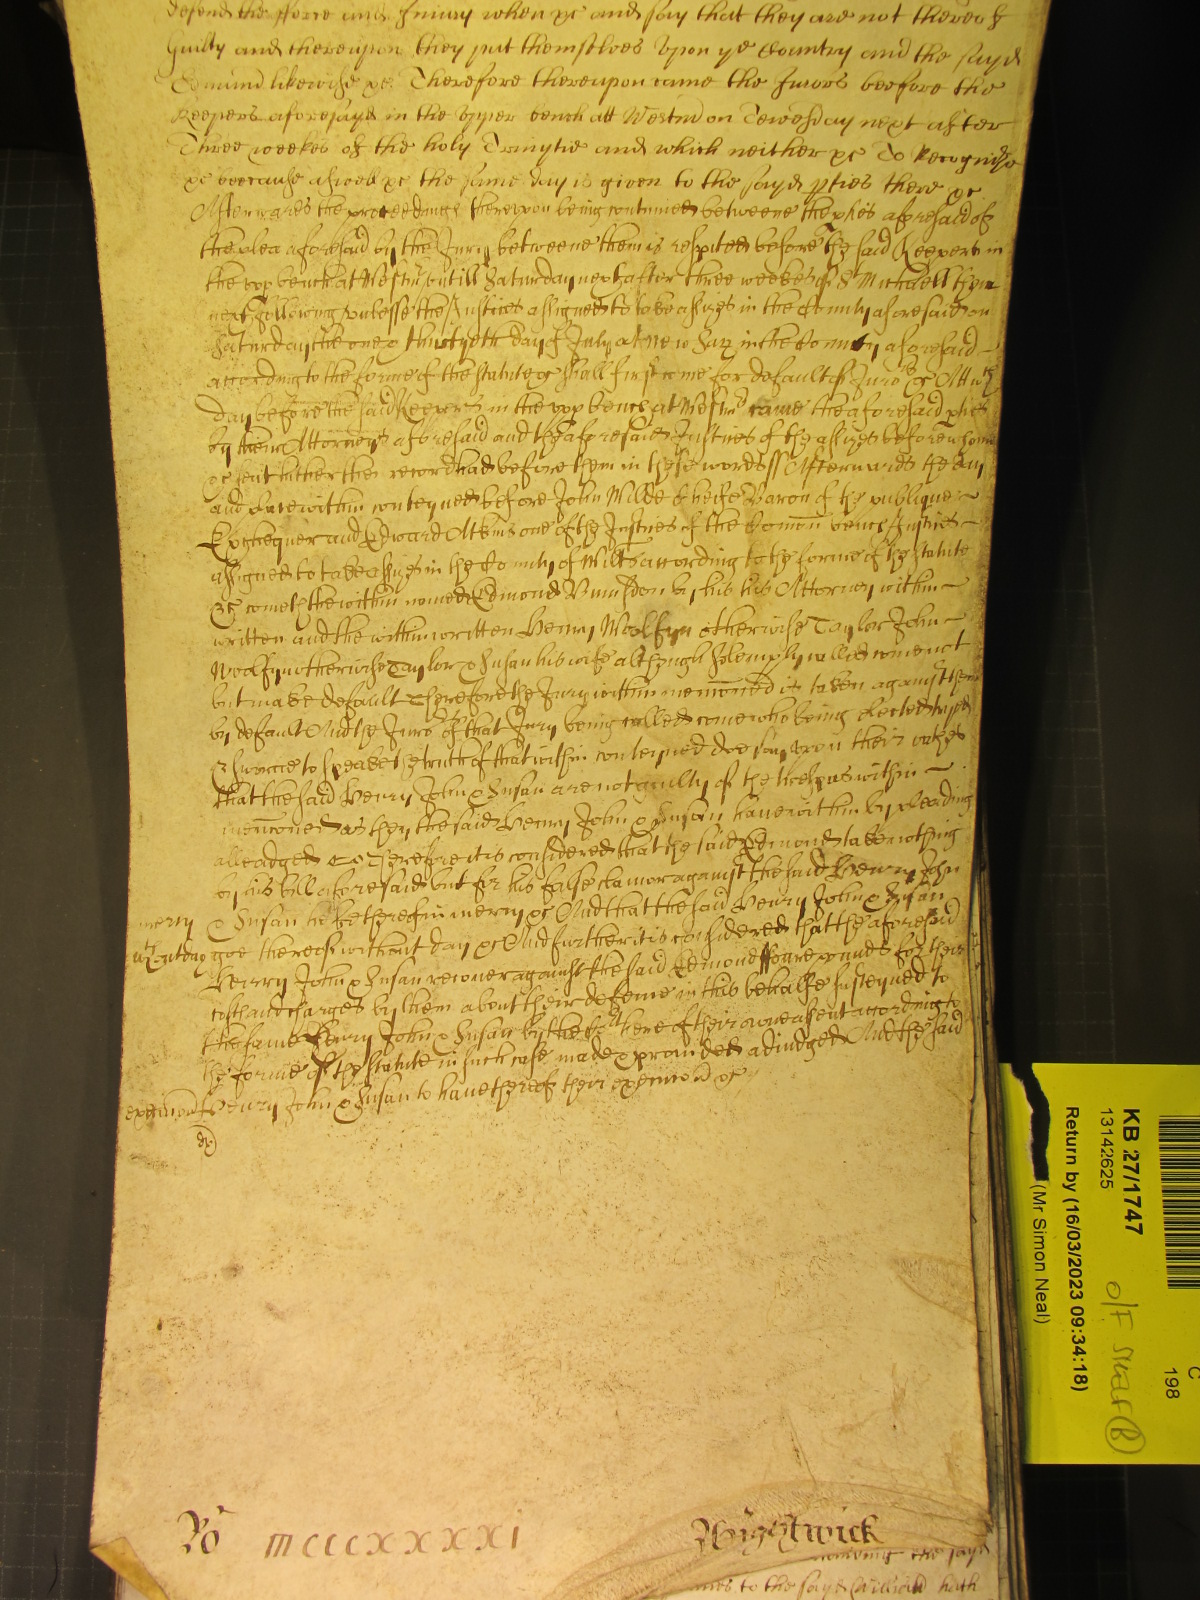 defend the fforce and Injury when &c and say that they are not thereof
Guilty and thereupon they put themselves Upon ye Country and the sayd
Edmund likewise &c Therefore thereupon came the Jurors beefore the
Keepers aforesayd in the Upper bench att Westm on Tewesday next after
Three weekes of the holy Trinytie and which neither &c To Recognize
&c because aswell &c the same day is given to the sayd pties there &c
Afterwards the proceedings thereupon being continued betweene the pties aforesaid of
the plea aforesaid by the Jury betweene them is respited before the said Keepers in
the upp bench at Westm untill Saturday next after three weekes of St Michaell then
next following unlesse the Justices assigned to take assizes in the County aforesaid on
Saturday the one & thirtyeth day of July at New Sarum in the County aforesaid
according to the forme of the statute &c shall first come for default of Jurors &c Att wch
day before the said Keepers in the upp bench at Westm came the aforesaid pties
by their Attorneys aforesaid and the aforesaid Justices of the assizes before whome
&c sent hither their record had before them in these words ss Afterwards the day
and place within conteyned before John Wilde Cheife Baron of the publique
Exchequer and Edward Atkins one of the Justices of the Comon bench Justices
assigned to take assizes in the County of Wilts according to the forme of the statute
&c cometh the within named Edmond by his Attorney within
written and the within written Henry Woolfyn otherwise Taylor John
Woolfyn otherwise Taylor & Susan his wife although solempnly called come not
but make default Therefore the Jury within menconed is taken against them
by default And the Jurors of that Jury being called come who being elected tryed
& sworne to speake the truth of that within conteyned doe say upon their oathes
that the said Henry John & Susan are not guilty of the trespas within
menconed as they the said Henry John & Susan have within by pleading
alleadged &c Therefore it is considered that the said Edmond take nothing
by his bill aforesaid but for his false clamor against the said Henry John
mercy & Susan he be thereof in mercy &c And that the said Henry John & Susan
wthout day goe thereof without day &c And further it is considered that the aforesaid
Henry John & Susan recover against the said Edmond ffoure pounds for their
costs and charges by them about their defence in this behalfe susteyned to
the same Henry John & Susan by the Court here of their owne assent according to
the forme of the statute in such case made & provided adjudged And the said
execucion Henry John & Susan to have thereof their execucion &c
Ro MCCCXXXXXI Wightwick
the sayd
to the sayd William hath
KB 27/1747
13142625
Return by (16/03/2023 09:34:18)
(Mr Simon Neal)
O/F
C
198